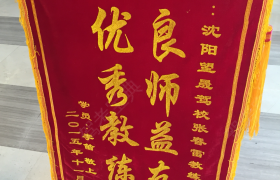 沈阳盟晟驾校张春雷教练
良师益友
优秀教练
学员：李菊 敬上
二〇一五年十一月